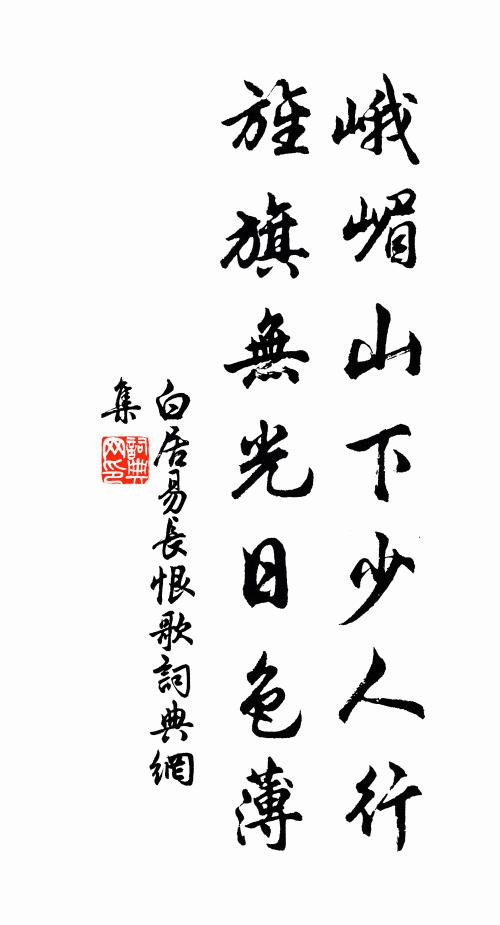 峨嵋山下少人行
旌旗無光日色薄
白居易長恨歌詞典網
集
詞典
网印